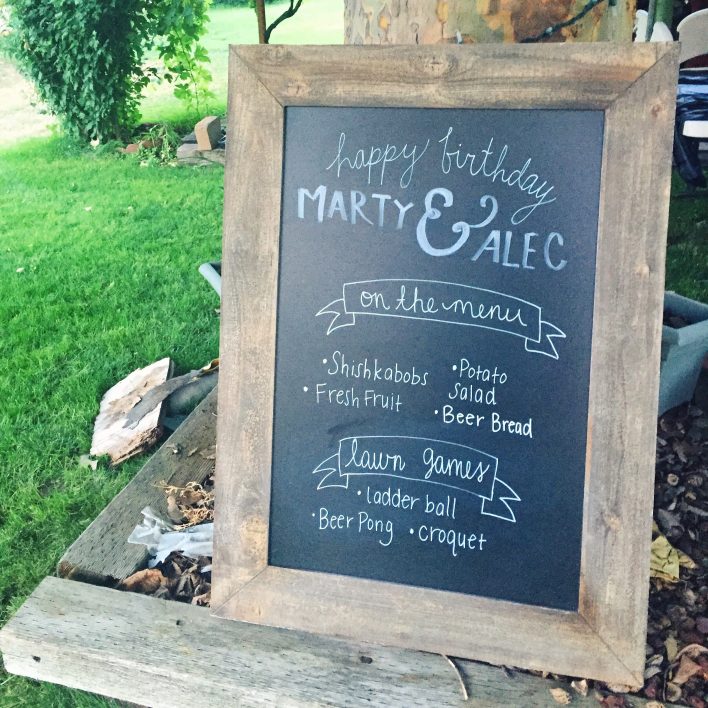 happy birthday
MARTY & ALEC
on the menu
• Shishkabobs
• Fresh Fruit
• Potato
Salad
• Beer Bread
lawn games
• ladder ball
• Beer Pong • croquet